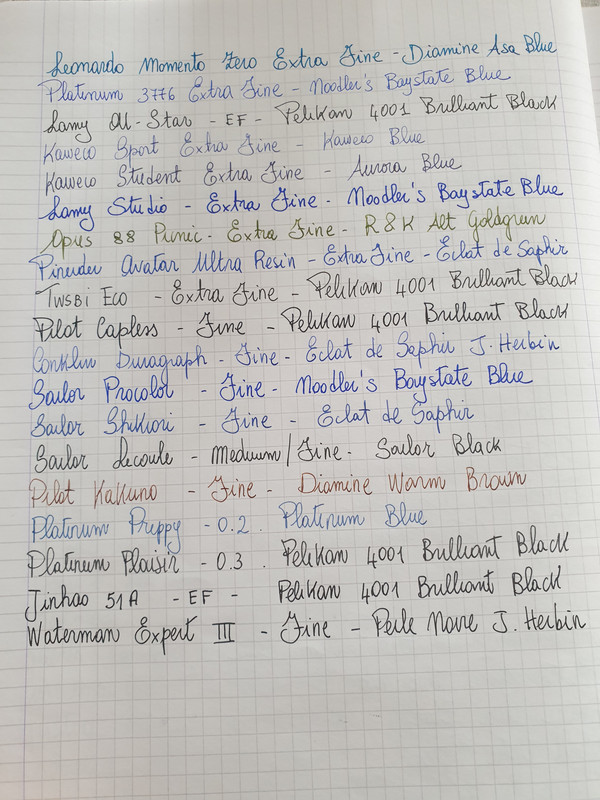 Leonardo Momento Zero Extra Fine - Diamine Asa Blue
Platinum 3776 Extra Fine - Noodler's Baystate Blue
Lamy Al-Star - EF - Pelikan 4001 Brilliant Black
Kaweco Sport Extra Fine - Kaweco Blue
Kaweco Student Extra Fine - Aurora Blue
Lamy Studio - Extra Fine - Noodler's Baystate Blue
Opus 88 Picnic - Extra Fine - R&K Alt Goldgrun
Pineider Avatar Ultra Resin - Extra Fine - Eclat de Saphir
Twsbi Eco - Extra Fine - Pelikan 4001 Brilliant Black
Pilot Capless - Fine - Pelikan 4001 Brilliant Black
Conklin Duragraph - Fine - Eclat de Saphir J. Herbin
Sailor Procolor - Fine - Noodler's Baystate Blue
Sailor Shikiori - Fine - Eclat de Saphir
Sailor Lecoule - Medium/Fine - Sailor Black
Pilot Kakuno - Fine - Diamine Warm Brown
Platinum Preppy - 0.2. Platinum Blue
Platinum Plaisir - 0.3. Pelikan 4001 Brilliant Black
Jinhao 51A - EF - Pelikan 4001 Brilliant Black
Waterman Expert III - Fine - Perle Noire J. Herbin